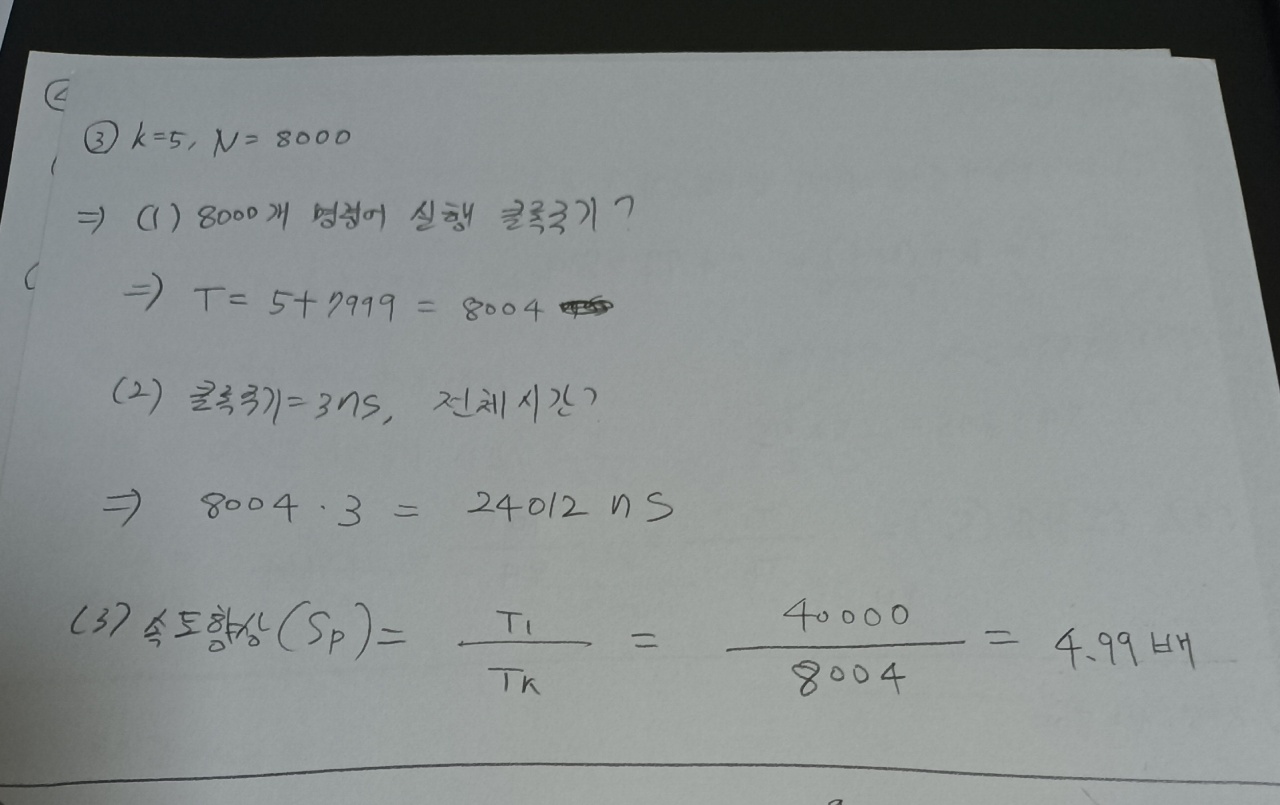 ③ k=5, N= 8000
⇒ (1) 8000개 명령어 실행 클록주기?
⇒ T= 5+7999 = 8004
(2) 클록주기=3ns, 전체시간?
⇒ 8004 · 3 = 24012 ns
(3) 속도향상(Sp)= T1 / TK = 40000 / 8004 = 4.99 배